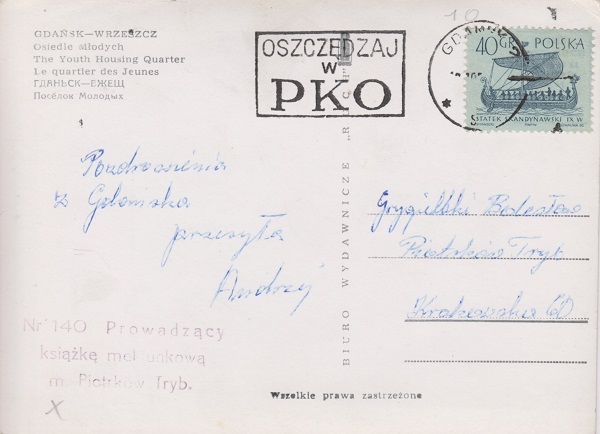 10
GDAŃSK—WRZESZCZ
Osiedle Młodych
The Youth Housing Quarter
Le quartier des Jeunes
ГДАНЬСК—ЕЖЕЩ
Посёлок Молодых
OSZCZĘDZAJ
W
PKO
GDAŃSK
40 GR POLSKA
STATEK SKANDYNAWSKI IX W.
Pozdrowienia
z Gdańska
przesyła
Andrzej
BIURO WYDAWNICZE „RUCH"
Bolesław
Piotrków Tryb
Krakowska
Nr 140 Prowadzący
książkę meldunkową
m. Piotrków Tryb.
X
Wszelkie prawa zastrzeżone